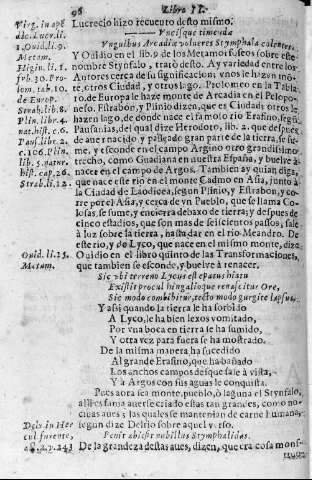 96 Libro II.
Lucrecio hizo recuerdo desto mismo.
Vncisque timenda
Vnguibus Arcadiæ volucres Stymphala colentes.
Y Ouidio en el lib 9 de los Metamorfoseos sobre este
nombre Stynfalo, tratò desto. Ay variedad entre los
Autores cerca de su significacion; vnos le hazen mõ-
te, otros Ciudad, y otros lago. Prolomeo en la Tabla
10. de Europa le haze monte de Arcadia en el Pelopo-
neso. Estrabõn, y Plinio dizen, que es Ciudad; otros le
hazen lago, de donde nace el famoso rio Erasino, segũ
Pausanias, del qual dize Herodoto, lib. 2. que despues
de auer nacido, y passado gran parte de la tierra, se su-
me, y esconde en el campo Argino otro grandissimo
trecho, como Guadiana en nuestra España, y buelue à
nacer en el campo de Argos. Tambien ay quien diga,
que nace este rio en el monte Cadmo en Asia, junto à
la Ciudad de Laodicea, segun Plinio, y Estrabon, y cor-
re por el Asia, y cerca de vn Pueblo, que se llama Co-
losas, se sume, y encierra debaxo de tierra; y despues de
cinco estadios, que son mas de seiscientos passos, sale
à luz sobre la tierra, hasta dar en el rio Meandro. De
este rio, y de Lyco, que nace en el mismo monte, dize
Ouidio en el libro quinto de las Transformaciones,
que tambien se esconde, y buelue à renacer.
Sic vbi terreno Lycus est epotus hiatu
Existit procul hinc, alioque renascitur Ore,
Sic modo combibitur, tecto modo gurgite lapsus.
Y assi quando la tierra le ha sorbido
A Lyco, le ha bien lexos vomitado,
Por vna boca en tierra se ha sumido,
Y otra vez para fuera se ha mostrado.
De la misma manera, ha sucedido
Al grande Erasino, que ha bañado
Los anchos campos de que sale à vista,
Y à Argos con sus aguas le conquista.
Pues aora sea monte, pueblo, ò laguna el Stynfalo,
alli es fama auerse criado estas tan grandes, como no-
ciuas aues; las quales se mantenian de carne humana,
segun dize Delrio sobre aquel verso.
Penit abiest nubillus Stymphalidas.
De la grandeza destas aues, dizen, que era cosa mons-
Virg. in apẽ
dic. Lucr. li.
1. Ouid. li. 9.
Metam.
Higin. li. 1.
fab. 30. Pro-
lom. tab. 10.
de Europ.
Strab. lib. 8.
Plin. lib. 4.
nat. hist. c. 6.
Paus. lib. 2.
Strab. li. 12.
Ouid. li. 15.
Metam.
Dels. in Her
cul furente,